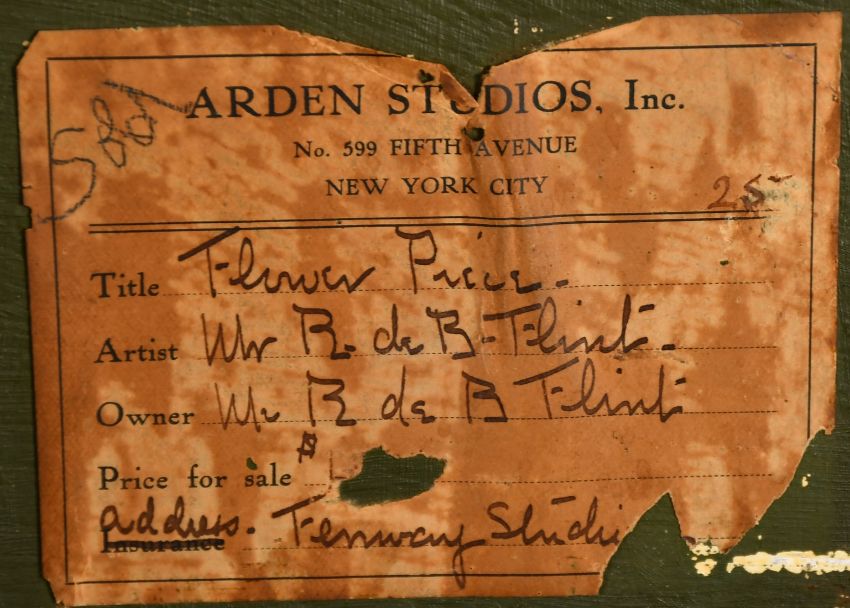 588
ARDEN STUDIOS, Inc.
No. 599 FIFTH AVENUE
NEW YORK CITY
25-
Title Flower Piece.
Artist Mr R. de B. Flint.
Owner Mr R de B Flint
Price for sale $
address. Fenway Studi
Insurance